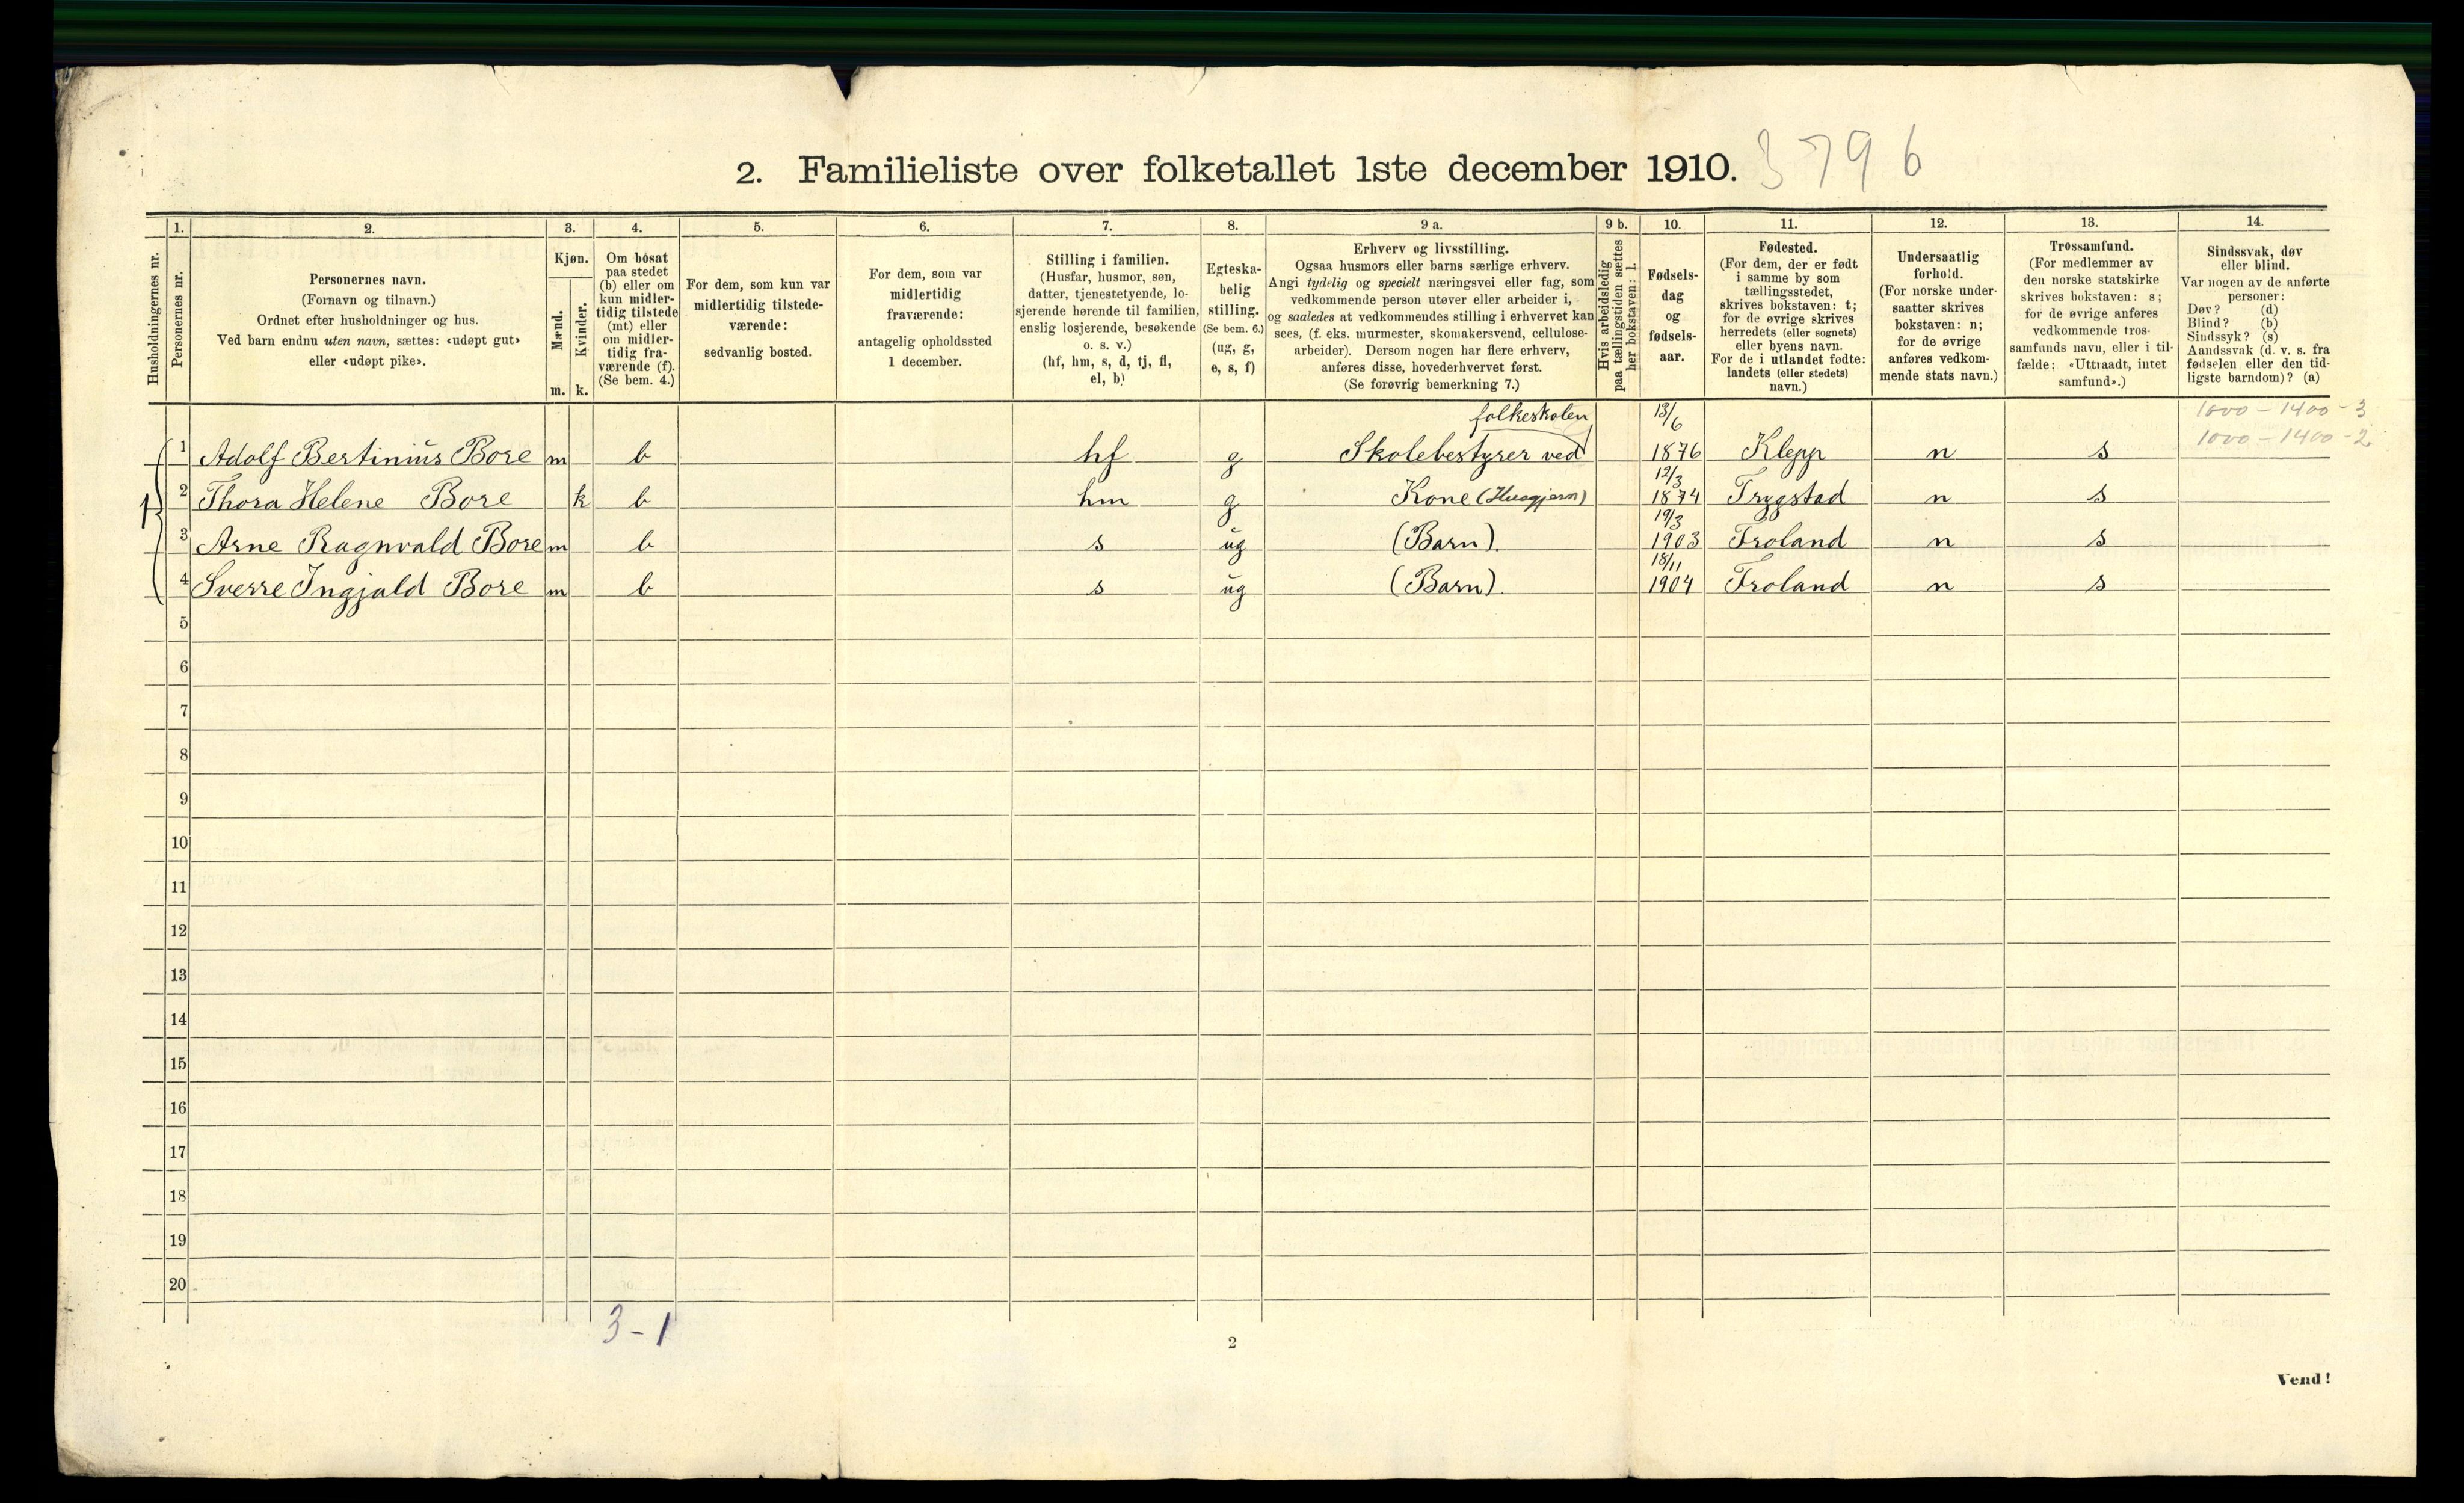 2. Familieliste over folketallet 1ste december 1910. 3796
Husholdningernes nr.
1.
Personernes nr.
2.
Personernes navn.
(Fornavn og tilnavn.)
Ordnet efter husholdninger og hus.
Ved barn endnu uten navn, sættes: «udøpt gut»
eller «udøpt pike».
3.
Kjøn.
Mænd.
m.
Kvinder.
k.
4.
Om bosat
paa stedet
(b) eller om
kun midler-
tidig tilstede
(mt) eller
om midler-
tidig fra-
værende (f).
(Se bem. 4.)
5.
For dem, som kun var
midlertidig tilstede-
værende:
sedvanlig bosted.
6.
For dem, som var
midlertidig
fraværende:
antagelig opholdssted
1 december.
7.
Stilling i familien.
(Husfar, husmor, søn,
datter, tjenestetyende, lo-
sjerende hørende til familien,
enslig losjerende, besøkende
o. s. v.)
(hf, hm, s, d, tj, fl,
el, b)
8.
Egteska-
belig
stilling.
(Se bem. 6.)
(ug, g,
e, s, f)
9 a.
Erhverv og livsstilling.
Ogsaa husmors eller barns særlige erhverv.
Angi tydelig og specielt næringsvei eller fag, som
vedkommende person utøver eller arbeider i,
og saaledes at vedkommendes stilling i erhvervet kan
sees, (f. eks. murmester, skomakersvend, cellulose-
arbeider). Dersom nogen har flere erhverv,
anføres disse, hovederhvervet først.
(Se forøvrig bemerkning 7.)
9 b.
Hvis arbeidsledig
paa tællingstiden sættes
her bokstaven: l.
10.
Fødsels-
dag
og
fødsels-
aar.
11.
Fødested.
(For dem, der er født
i samme by som
tællingsstedet,
skrives bokstaven: t;
for de øvrige skrives
herredets (eller sognets)
eller byens navn.
For de i utlandet fødte:
landets (eller stedets)
navn.)
12.
Undersaatlig
forhold.
(For norske under-
saatter skrives
bokstaven: n;
for de øvrige
anføres vedkom-
mende stats navn.)
13.
Trossamfund.
(For medlemmer av
den norske statskirke
skrives bokstaven: s;
for de øvrige anføres
vedkommende tros-
samfunds navn, eller i til-
fælde: «Uttraadt, intet
samfund».)
14.
Sindssvak, døv
eller blind.
Var nogen av de anførte
personer:
Døv? (d)
Blind? (b)
Sindssyk? (s)
Aandssvak (d. v. s. fra
fødselen eller den tid-
ligste barndom)? (a)
folkeskolen 13/6 1000 - 1400 - 3
1000 - 1400 - 2
1 Adolf Bertinius Bore m b hf g Skolebestyrer ved 1876 Klepp n s
12/3
1 2 Thora Helene Bore k b hm g Kone (Husgjern) 1874 Trygstad n s
19/3
3 Arne Ragnvald Bore m b s ug (Barn). 1903 Froland n s
18/11
4 Sverre Ingjald Bore m b s ug (Barn). 1904 Froland n s
5
6
7
8
9
10
11
12
13
14
15
16
17
18
19
20
3 - 1
2
Vend!